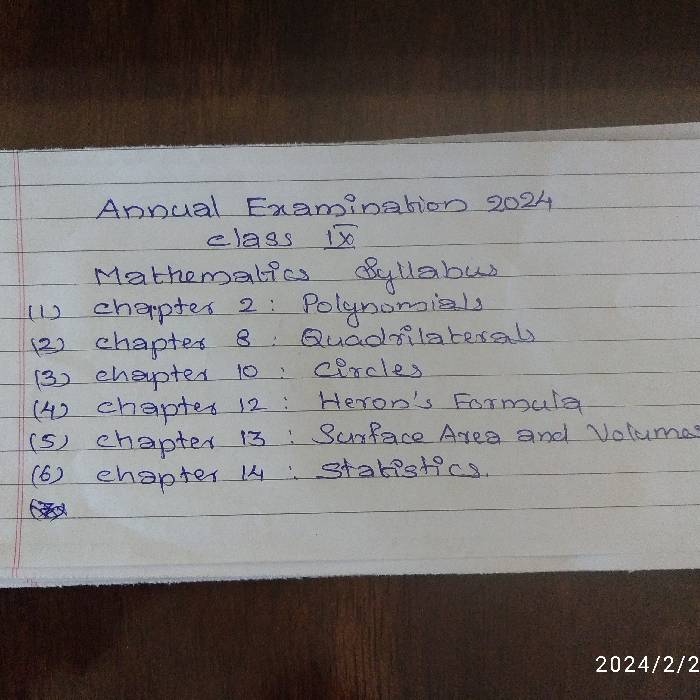 Annual Examination 2024
class IX
Mathematics Syllabus
(1) chapter 2 : Polynomials
(2) chapter 8 : Quadrilaterals
(3) chapter 10 : Circles
(4) chapter 12 : Heron's Formula
(5) chapter 13 : Surface Area and Volumes
(6) chapter 14 : Statistics.
2024/2/2